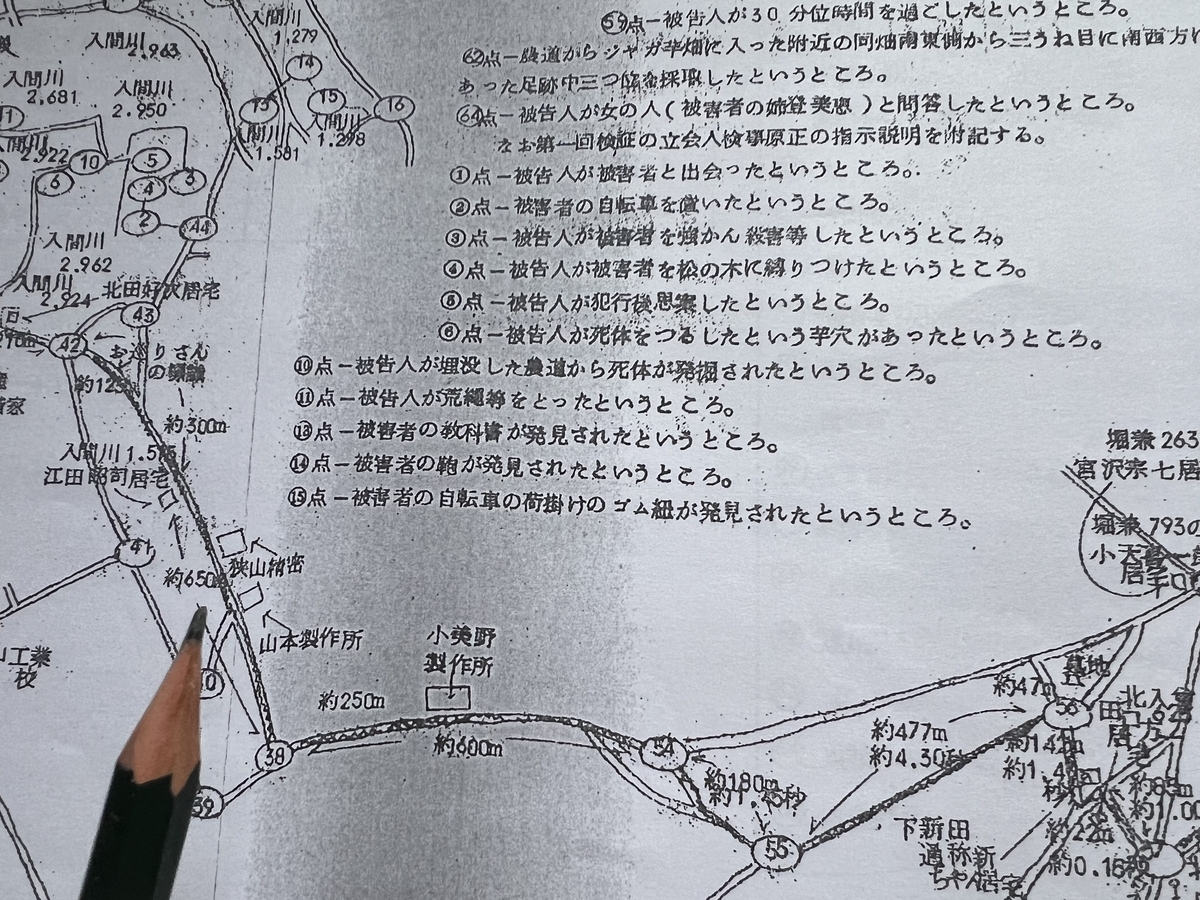 59点－被告人が30分位時間を過ごしたというところ。
62点－農道からジャガ芋畑に入った附近の同畑南東側から三うね目に南西方に
あった足跡中三つ位を採取したというところ。
64点－被告人が女の人(被害者の姉登美恵)と問答したというところ。
なお第一回検証の立会人検事原正の指示説明を附記する。
①点－被告人が被害者と出会ったというところ。
②点－被害者の自転車を置いたというところ。
③点－被告人が被害者を強かん殺害等したというところ。
④点－被告人が被害者を松の木に縛りつけたというところ。
⑤点－被告人が犯行後思案したというところ。
⑥点－被告人が死体をつるしたという芋穴があったというところ。
⑩点－被告人が埋没した農道から死体が発掘されたというところ。
⑪点－被告人が荒縄等をとったというところ。
⑬点－被害者の教科書が発見されたというところ。
⑭点－被害者の鞄が発見されたというところ。
⑮点－被害者の自転車の荷掛けのゴム紐が発見されたというところ。
入間川
2.963
入間川
1.279
入間川
2.681
入間川
2.950
14
13
15
16
入間川
1.298
入間川
1.581
11
2.922
10
5
6
4
3
2
44
入間川
2.962
入間川
2.924
北田好次居宅
43
42
約300m
入間川
江田昭司居宅
41
約650m
狭山精密
山本製作所
小美野
製作所
約250m
約600m
38
39
54
約180m
55
約477m
約4.30秒
約47m
墓地
56
約142m
約22m
約0.16秒
下新田
通称新
ちゃん居宅
堀兼 263
宮沢宗七居
堀兼 793の
工業
校